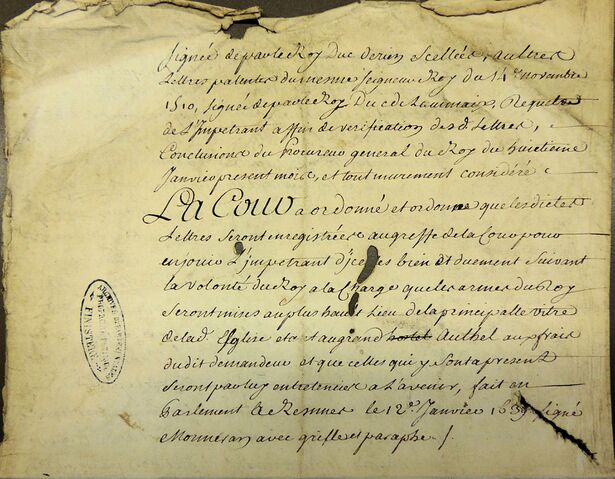 Signée de par le Roy Duc de rien Scellées, autres
Lettres patentes du mesme Seigneur Roy du 14e novembre
1510, Signée de par le Roy Duc de Laudmaix, Requeste
de L'Impetrant affin de verification desd Lettres,
Conclusions du Procureur general du Roy du huictieme
Janvier present mois, et tout murement considéré
La Cour a ordonné et ordonne que lesdictes
Lettres seront enregistrées au greffe de la Cour pour
en jouir L'impetrant d'jcelles bien et duement suivant
la volonté du Roy a la Charge que les armes du Roy
seront mises au plus haut Lieu de la principalle vitre
de lad. Eglise et au grand Authel aux frais
dudit demandeur et que celles qui y sont a present
seront par luy entretenües a L'avenir, fait en
Parlement A Rennes le 12e Janvier signé
Monneran avec grille et paraphe /.
FINISTERE